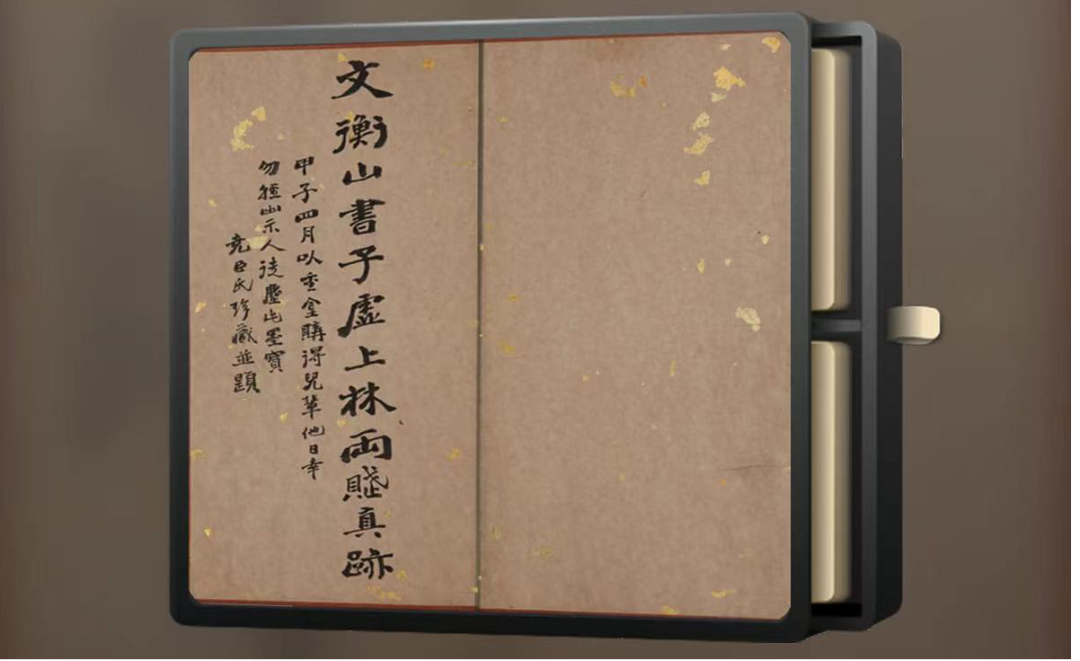 文衡山書子虛上林兩賦真跡
甲子四月以重金購得兒輩他日幸
勿輕出示人徒塵此墨寶
堯臣氏珍藏並題